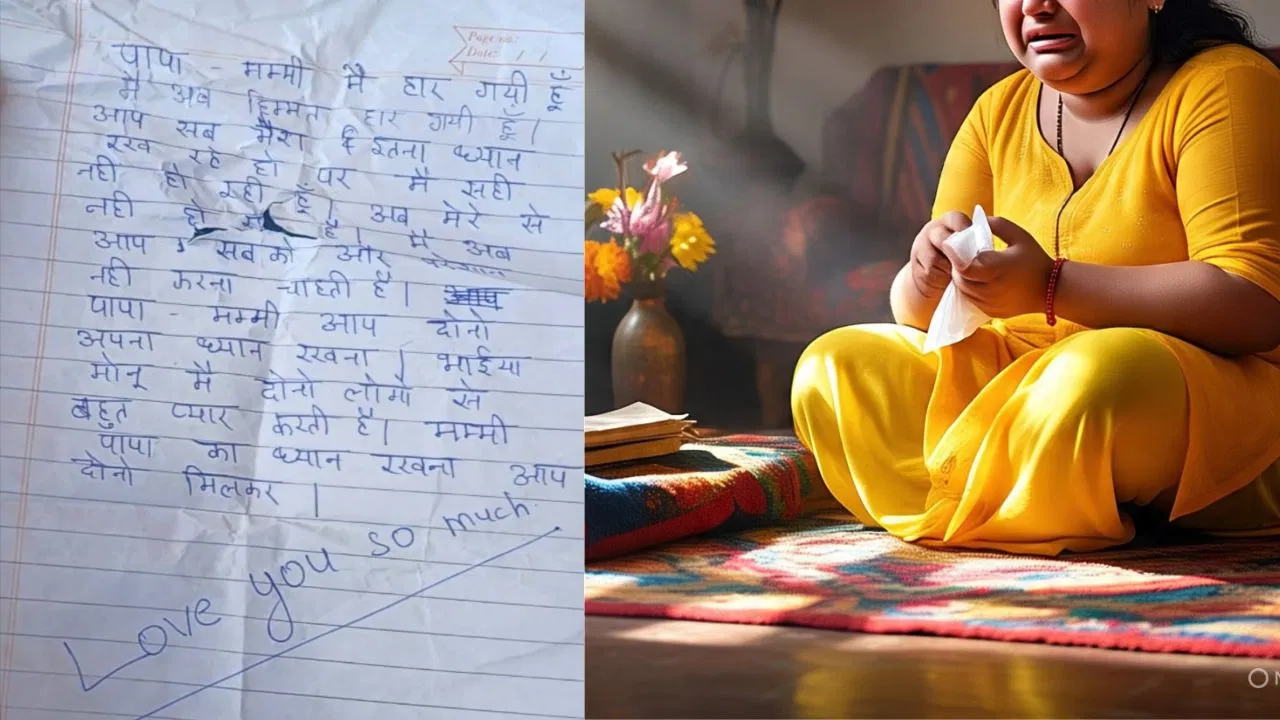 Page no:
Date: / /
पापा - मम्मी मै हार गयी हूँ
मै अब हिम्मत हार गयी हूँ।
आप सब मेरा इतना ध्यान
रख रहे हो पर मै सही
नही हो रही हूँ। अब मेरे से
नही हो है। मै अब
आप सबको और परेशान
नही करना चाहती हूँ। आप
पापा - मम्मी आप दोनो
अपना ध्यान रखना। भाईया
मोनू मै दोनो लोगो से
बहुत प्यार करती है। मम्मी
पापा का ध्यान रखना आप
दोनो मिलकर।
Love you so much.